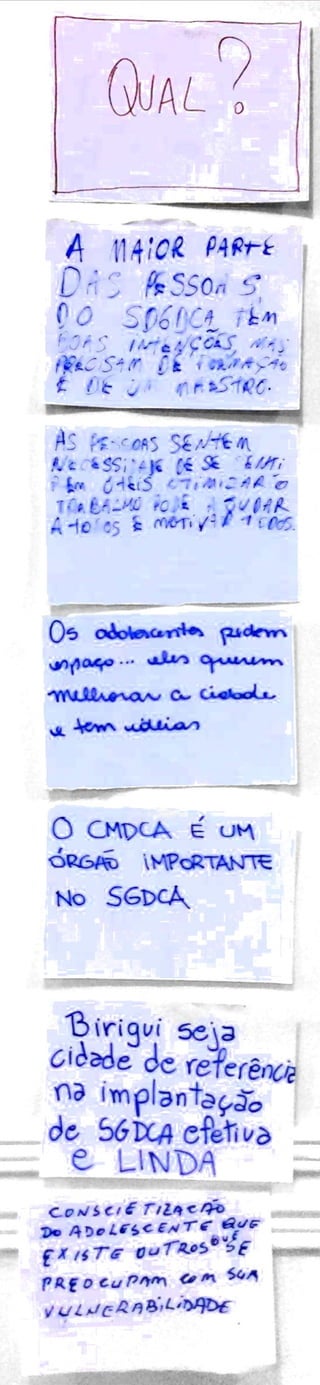 QUAL?
A MAIOR PARTE
DAS PESSOAS
DO SDGDCA TEM
BOAS INTENÇÕES MAS
PRECISAM DE FORMAÇÃO
E DE UM MAESTRO.
AS PESSOAS SENTEM
NECESSIDADE DE SE SENTI
REM ÚTEIS OTIMIZAR O
TRABALHO PODE AJUDAR
A TODOS E MOTIVAR TODOS.
Os adolescentes pedem
espaço... eles querem
melhorar a cidade
e tem idéias
O CMDCA É UM
ÓRGÃO IMPORTANTE
NO SGDCA
Birigui seja
cidade de referência
na implantação
de SGDCA efetiva
e LINDA
CONSCIETIZAÇÃO
DO ADOLESCENTE QUE
EXISTE OUTROS QUE SE
PREOCUPAM COM SUA
VULNERABILIDADE